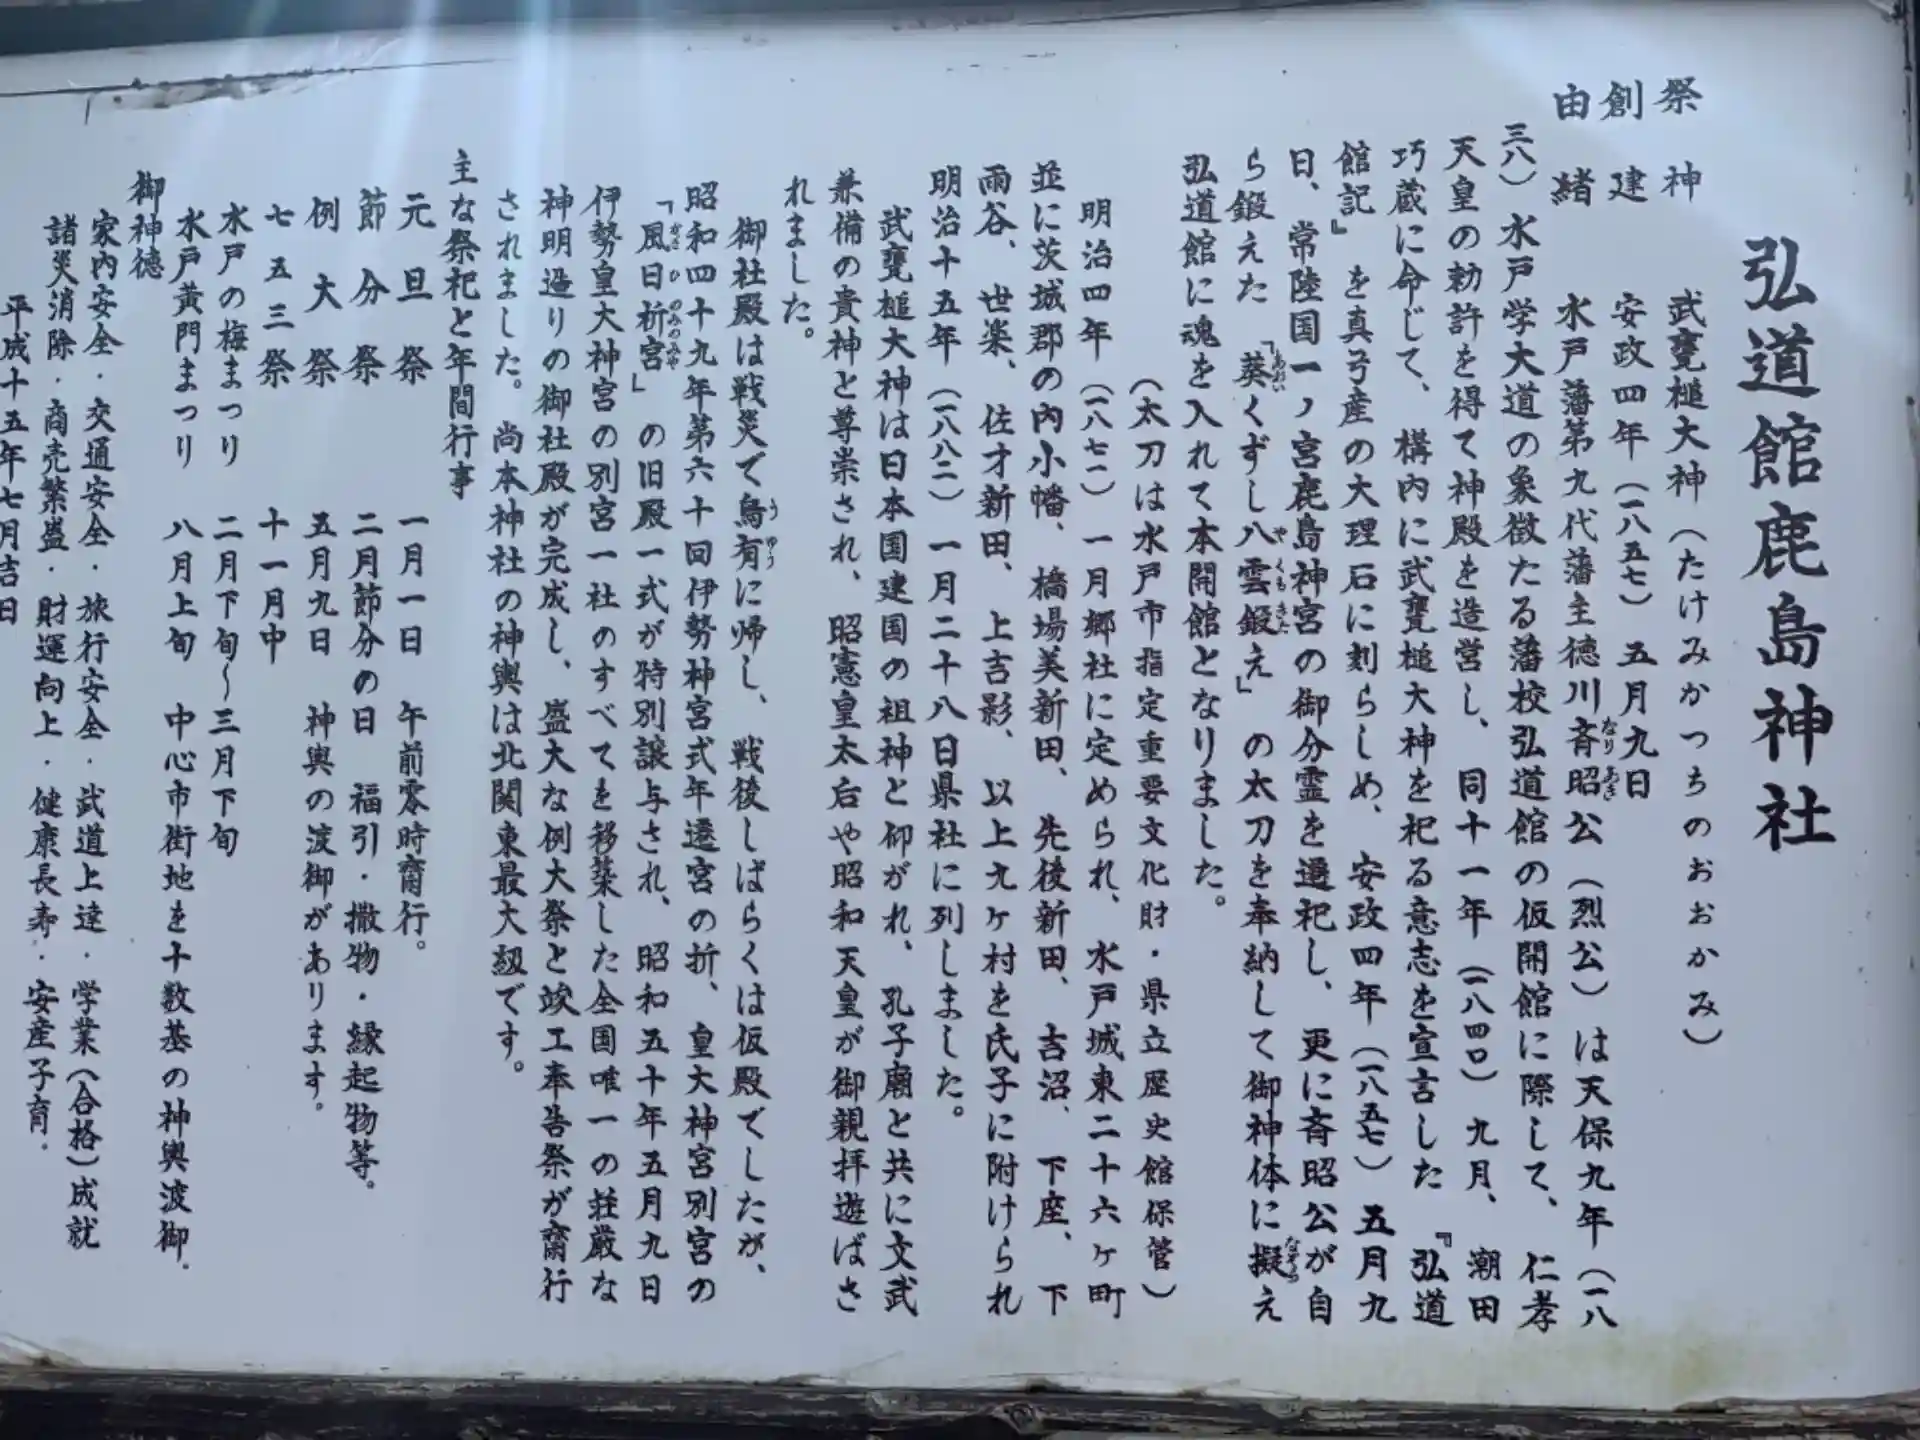 弘道館鹿島神社
祭神 武甕槌大神（たけみかつちのおおかみ）
創建 安政四年（一八五七）五月九日
由緒 水戸藩第九代藩主徳川斉昭公（烈公）は天保九年（一八
三八）水戸学大道の象徴たる藩校弘道館の仮開館に際して、仁孝
天皇の勅許を得て神殿を造営し、同十一年（一八四〇）九月、潮田
巧蔵に命じて、構内に武甕槌大神を祀る意志を宣言した『弘道
館記』を真弓産の大理石に刻らしめ、安政四年（一八五七）五月九
日、常陸国一ノ宮鹿島神宮の御分霊を遷祀し、更に斉昭公が自
ら鍛えた「葵くずし八雲鍛え」の太刀を奉納して御神体に擬え
弘道館に魂を入れて本開館となりました。
（太刀は水戸市指定重要文化財・県立歴史館保管）
明治四年（一八七一）一月郷社に定められ、水戸城東二十六ヶ町
並に茨城郡の内小幡、橋場美新田、先後新田、吉沼、下座、下
雨谷、世楽、佐才新田、上吉影、以上九ヶ村を氏子に附けられ
明治十五年（一八八二）一月二十八日県社に列しました。
武甕槌大神は日本国建国の祖神と仰がれ、孔子廟と共に文武
兼備の貴神と尊崇され、昭憲皇太后や昭和天皇が御親拝遊ばさ
れました。
御社殿は戦災で烏有に帰し、戦後しばらくは仮殿でしたが、
昭和四十九年第六十回伊勢神宮式年遷宮の折、皇大神宮別宮の
「風日祈宮」の旧殿一式が特別譲与され、昭和五十年五月九日
伊勢皇大神宮の別宮一社のすべてを移築した全国唯一の荘厳な
神明造りの御社殿が完成し、盛大な例大祭と竣工奉告祭が齋行
されました。尚本神社の神輿は北関東最大級です。
主な祭祀と年間行事
元旦祭 一月一日 午前零時齋行。
節分祭 二月節分の日 福引・撒物・縁起物等。
例大祭 五月九日 神輿の渡御があります。
七五三祭 十一月中
水戸の梅まつり 二月下旬～三月下旬
水戸黄門まつり 八月上旬 中心市街地を十数基の神輿渡御.
御神徳
家内安全・交通安全・旅行安全・武道上達・学業（合格）成就
諸災消除・商売繁盛・財運向上・健康長寿・安産子育.
平成十五年七月吉日